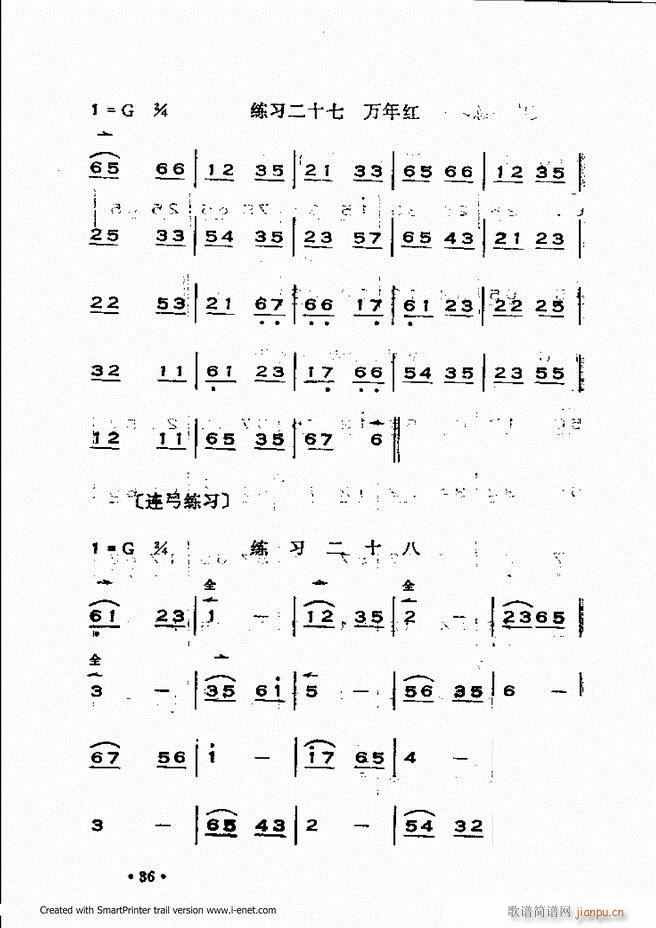 1=G 2/4 练习二十七 万年红
65 66 | 12 35 | 21 33 | 65 66 | 12 35 |
25 33 | 54 35 | 23 57 | 65 43 | 21 23 |
22 53 | 21 67 | 66 17 | 61 23 | 22 25 |
32 11 | 61 23 | 17 66 | 54 35 | 23 55 |
12 11 | 65 35 | 67 6 ‖
〔连弓练习〕
1=G 2/4 练习二十八
全 全
61 23 | 1 — | 12 35 | 2 — | 2365 |
全
3 — | 35 61 | 5 — | 56 35 | 6 — |
67 56 | 1 — | 17 65 | 4 — |
3 — | 65 43 | 2 — | 54 32 |
·36·
Created with SmartPrinter trail version www.i-enet.com
歌谱简谱网 jianpu.cn